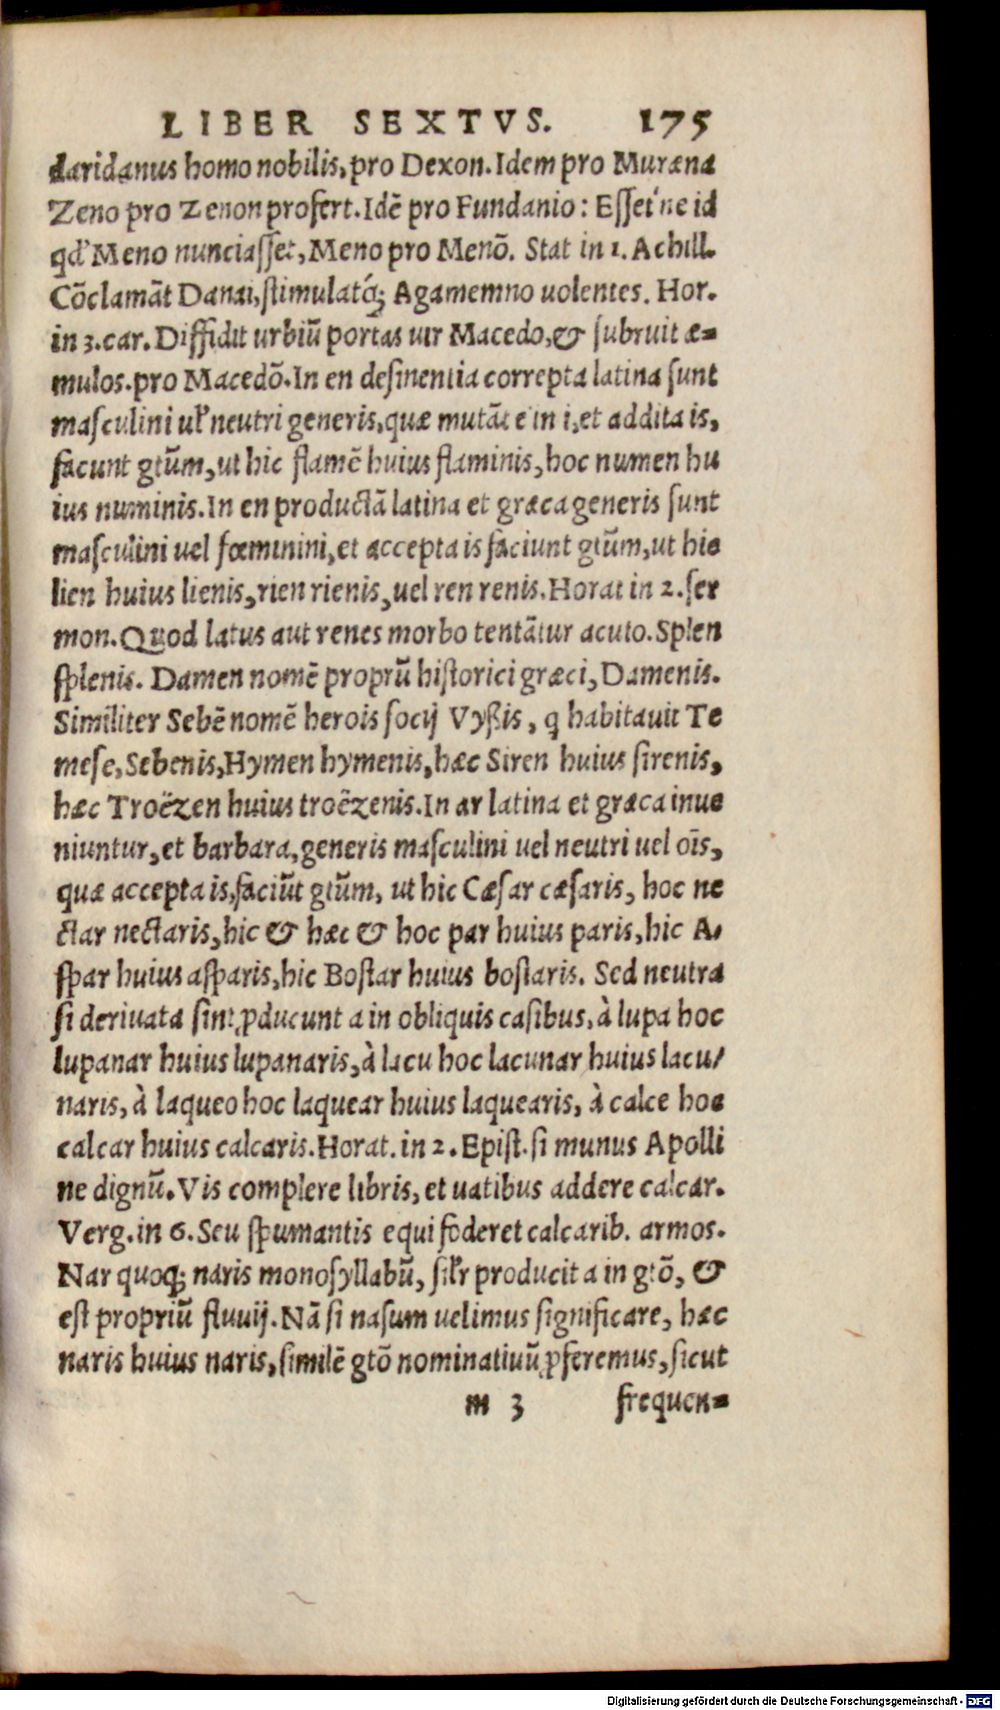 LIBER SEXTVS. 175
daridanus homo nobilis, pro Dexon. Idem pro Muræna
Zeno pro Zenon profert. Idē pro Fundanio: Esset ne id
qđ Meno nunciasset, Meno pro Menō. Stat in 1. Achill.
Cōclamāt Danai, stimulatq́; Agamemno uolentes. Hor.
in 3. car. Diffidit urbiū portas uir Macedo, & subruit æ-
mulos. pro Macedō. In en desinentia correpta latina sunt
masculini ul̓ neutri generis, quæ mutāt e in i, et addita is,
facunt gtūm, ut hic flamē huius flaminis, hoc numen hu
ius numinis. In en productā latina et græca generis sunt
masculini uel fœminini, et accepta is faciunt gtūm, ut hic
lien huius lienis, rien rienis, uel ren renis. Horat in 2. ser
mon. Quod latus aut renes morbo tentātur acuto. Splen
splenis. Damen nomē propriū historici græci, Damenis.
Similiter Sebē nomē herois socij Vyßis, q habitauit Te
mese, Sebenis, Hymen hymenis, hæc Siren huius sirenis,
hæc Troëzen huius troëzenis. In ar latina et græca inue
niuntur, et barbara, generis masculini uel neutri uel oīs,
quæ accepta is, faciūt gtūm, ut hic Cæsar cæsaris, hoc ne
ctar nectaris, hic & hæc & hoc par huius paris, hic A-
spar huius asparis, hic Bostar huius bostaris. Sed neutra
si deriuata sint, ꝓducunt a in obliquis casibus, à lupa hoc
lupanar huius lupanaris, à lacu hoc lacunar huius lacu-
naris, à laqueo hoc laquear huius laquearis, à calce hoc
calcar huius calcaris. Horat. in 2. Epist. si munus Apolli
ne dignū. Vis complere libris, et uatibus addere calcar.
Verg. in 6. Seu spumantis equi foderet calcarib. armos.
Nar quoq; naris monosyllabū, sil̓r producit a in gtō, &
est propriū fluuij. Nā si nasum uelimus significare, hæc
naris huius naris, similē gtō nominatiuū ꝓferemus, sicut
m 3 frequen-
Digitalisierung gefördert durch die Deutsche Forschungsgemeinschaft - DFG